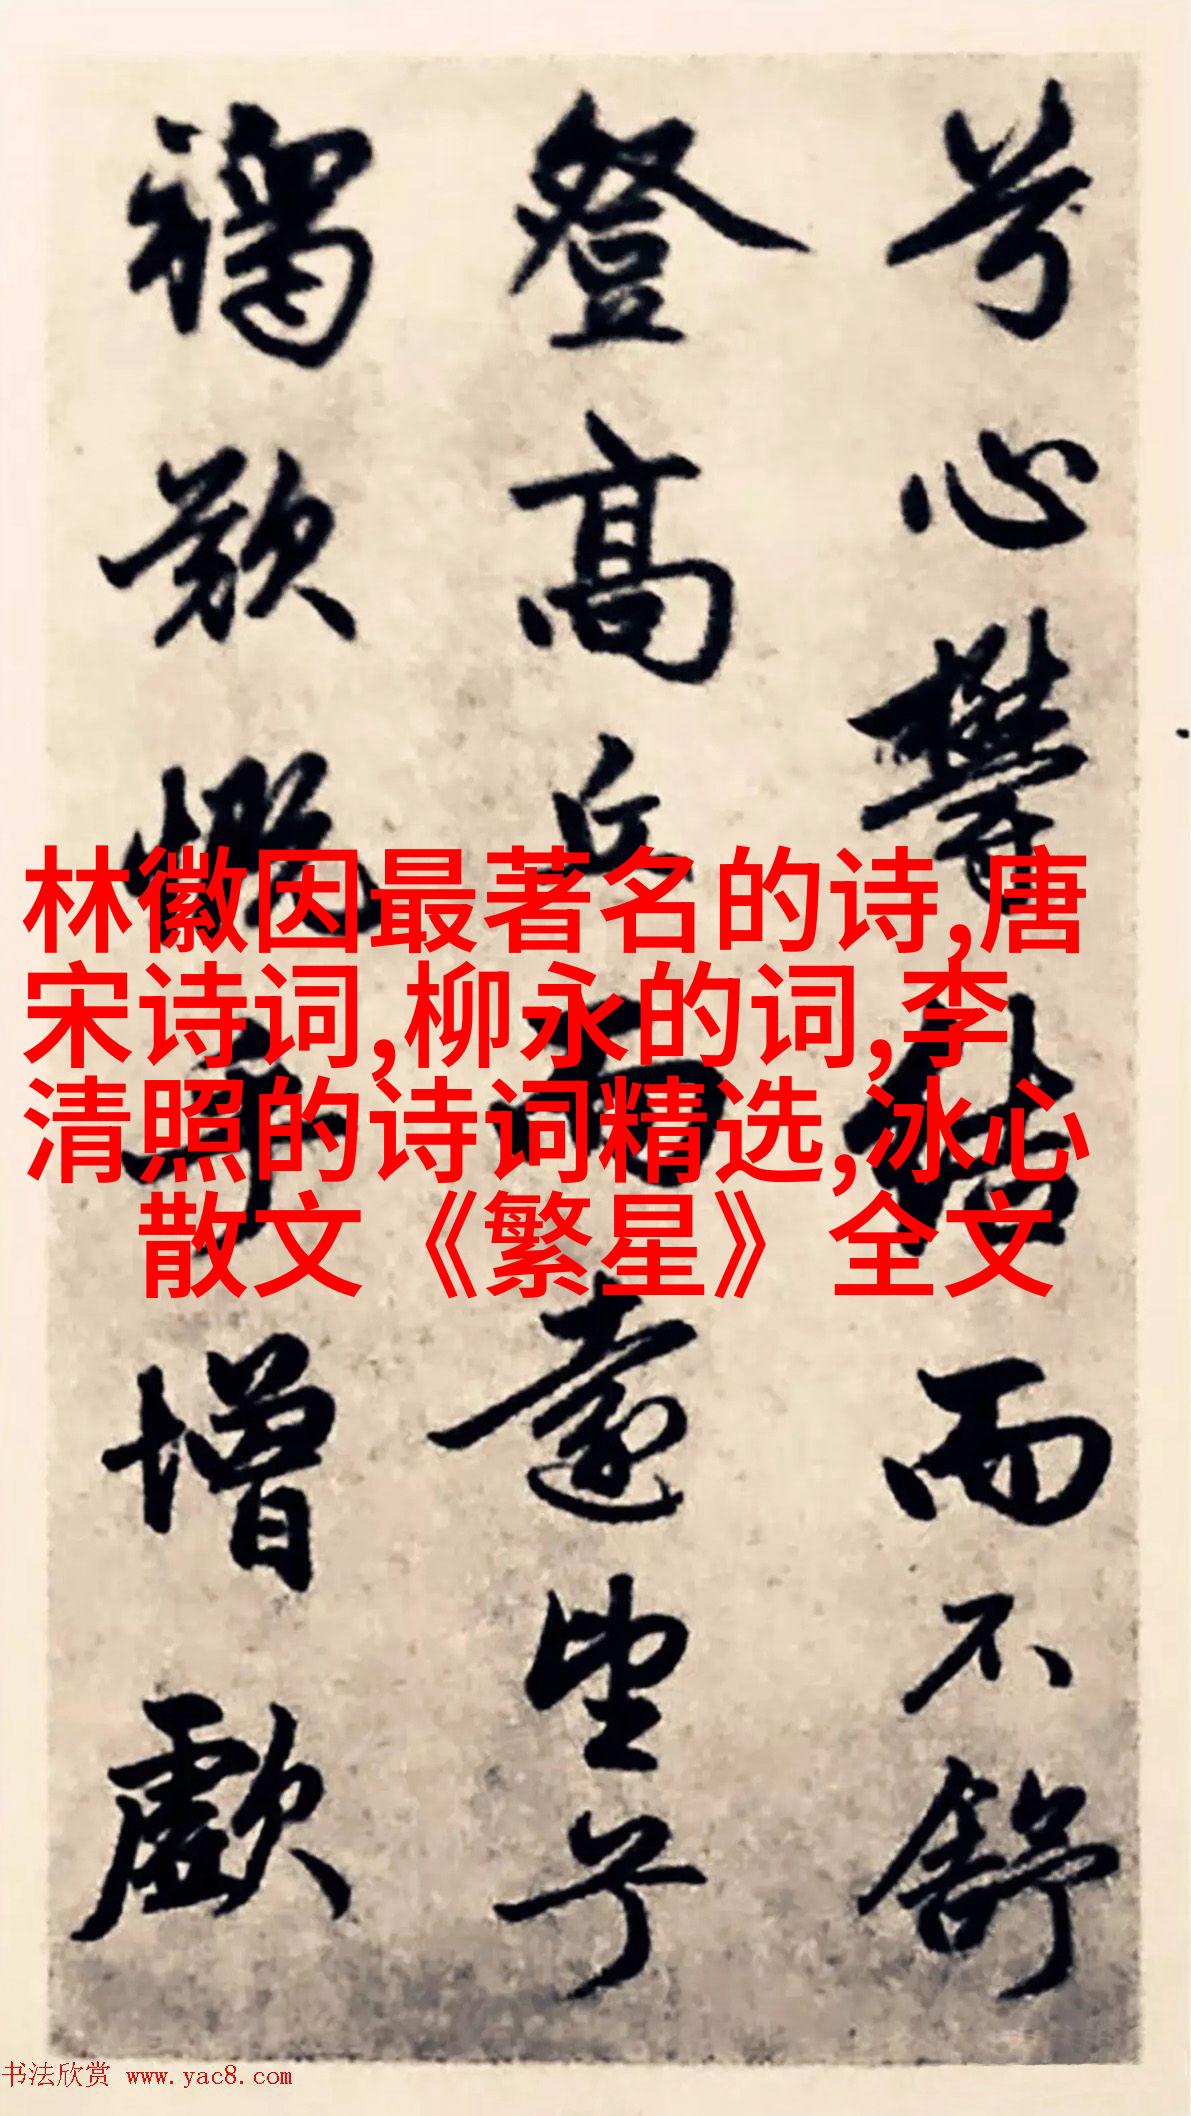 兮心欝結而不舒
登高丘而遠望兮
歎慨增歔
林徽因最著名的诗,唐
宋诗词,柳永的词,李
清照的诗词精选,冰心
散文《繁星》全文
书法欣赏 www.yac8.com